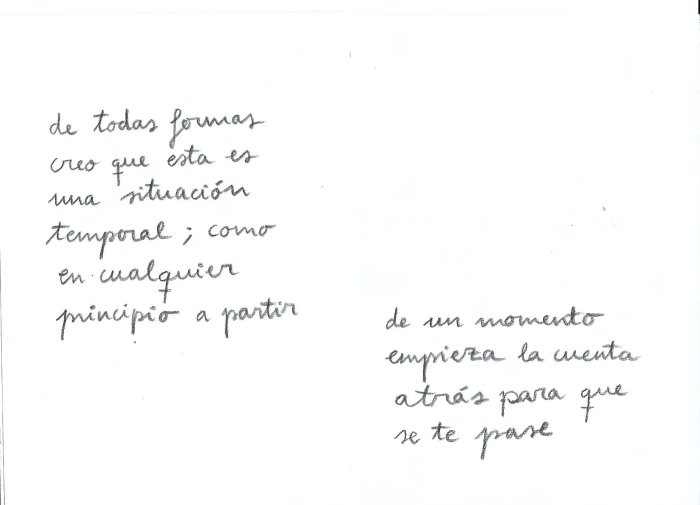 de todas formas
creo que esta es
una situación
temporal ; como
en cualquier
principio a partir
de un momento
empieza la cuenta
atrás para que
se te pase